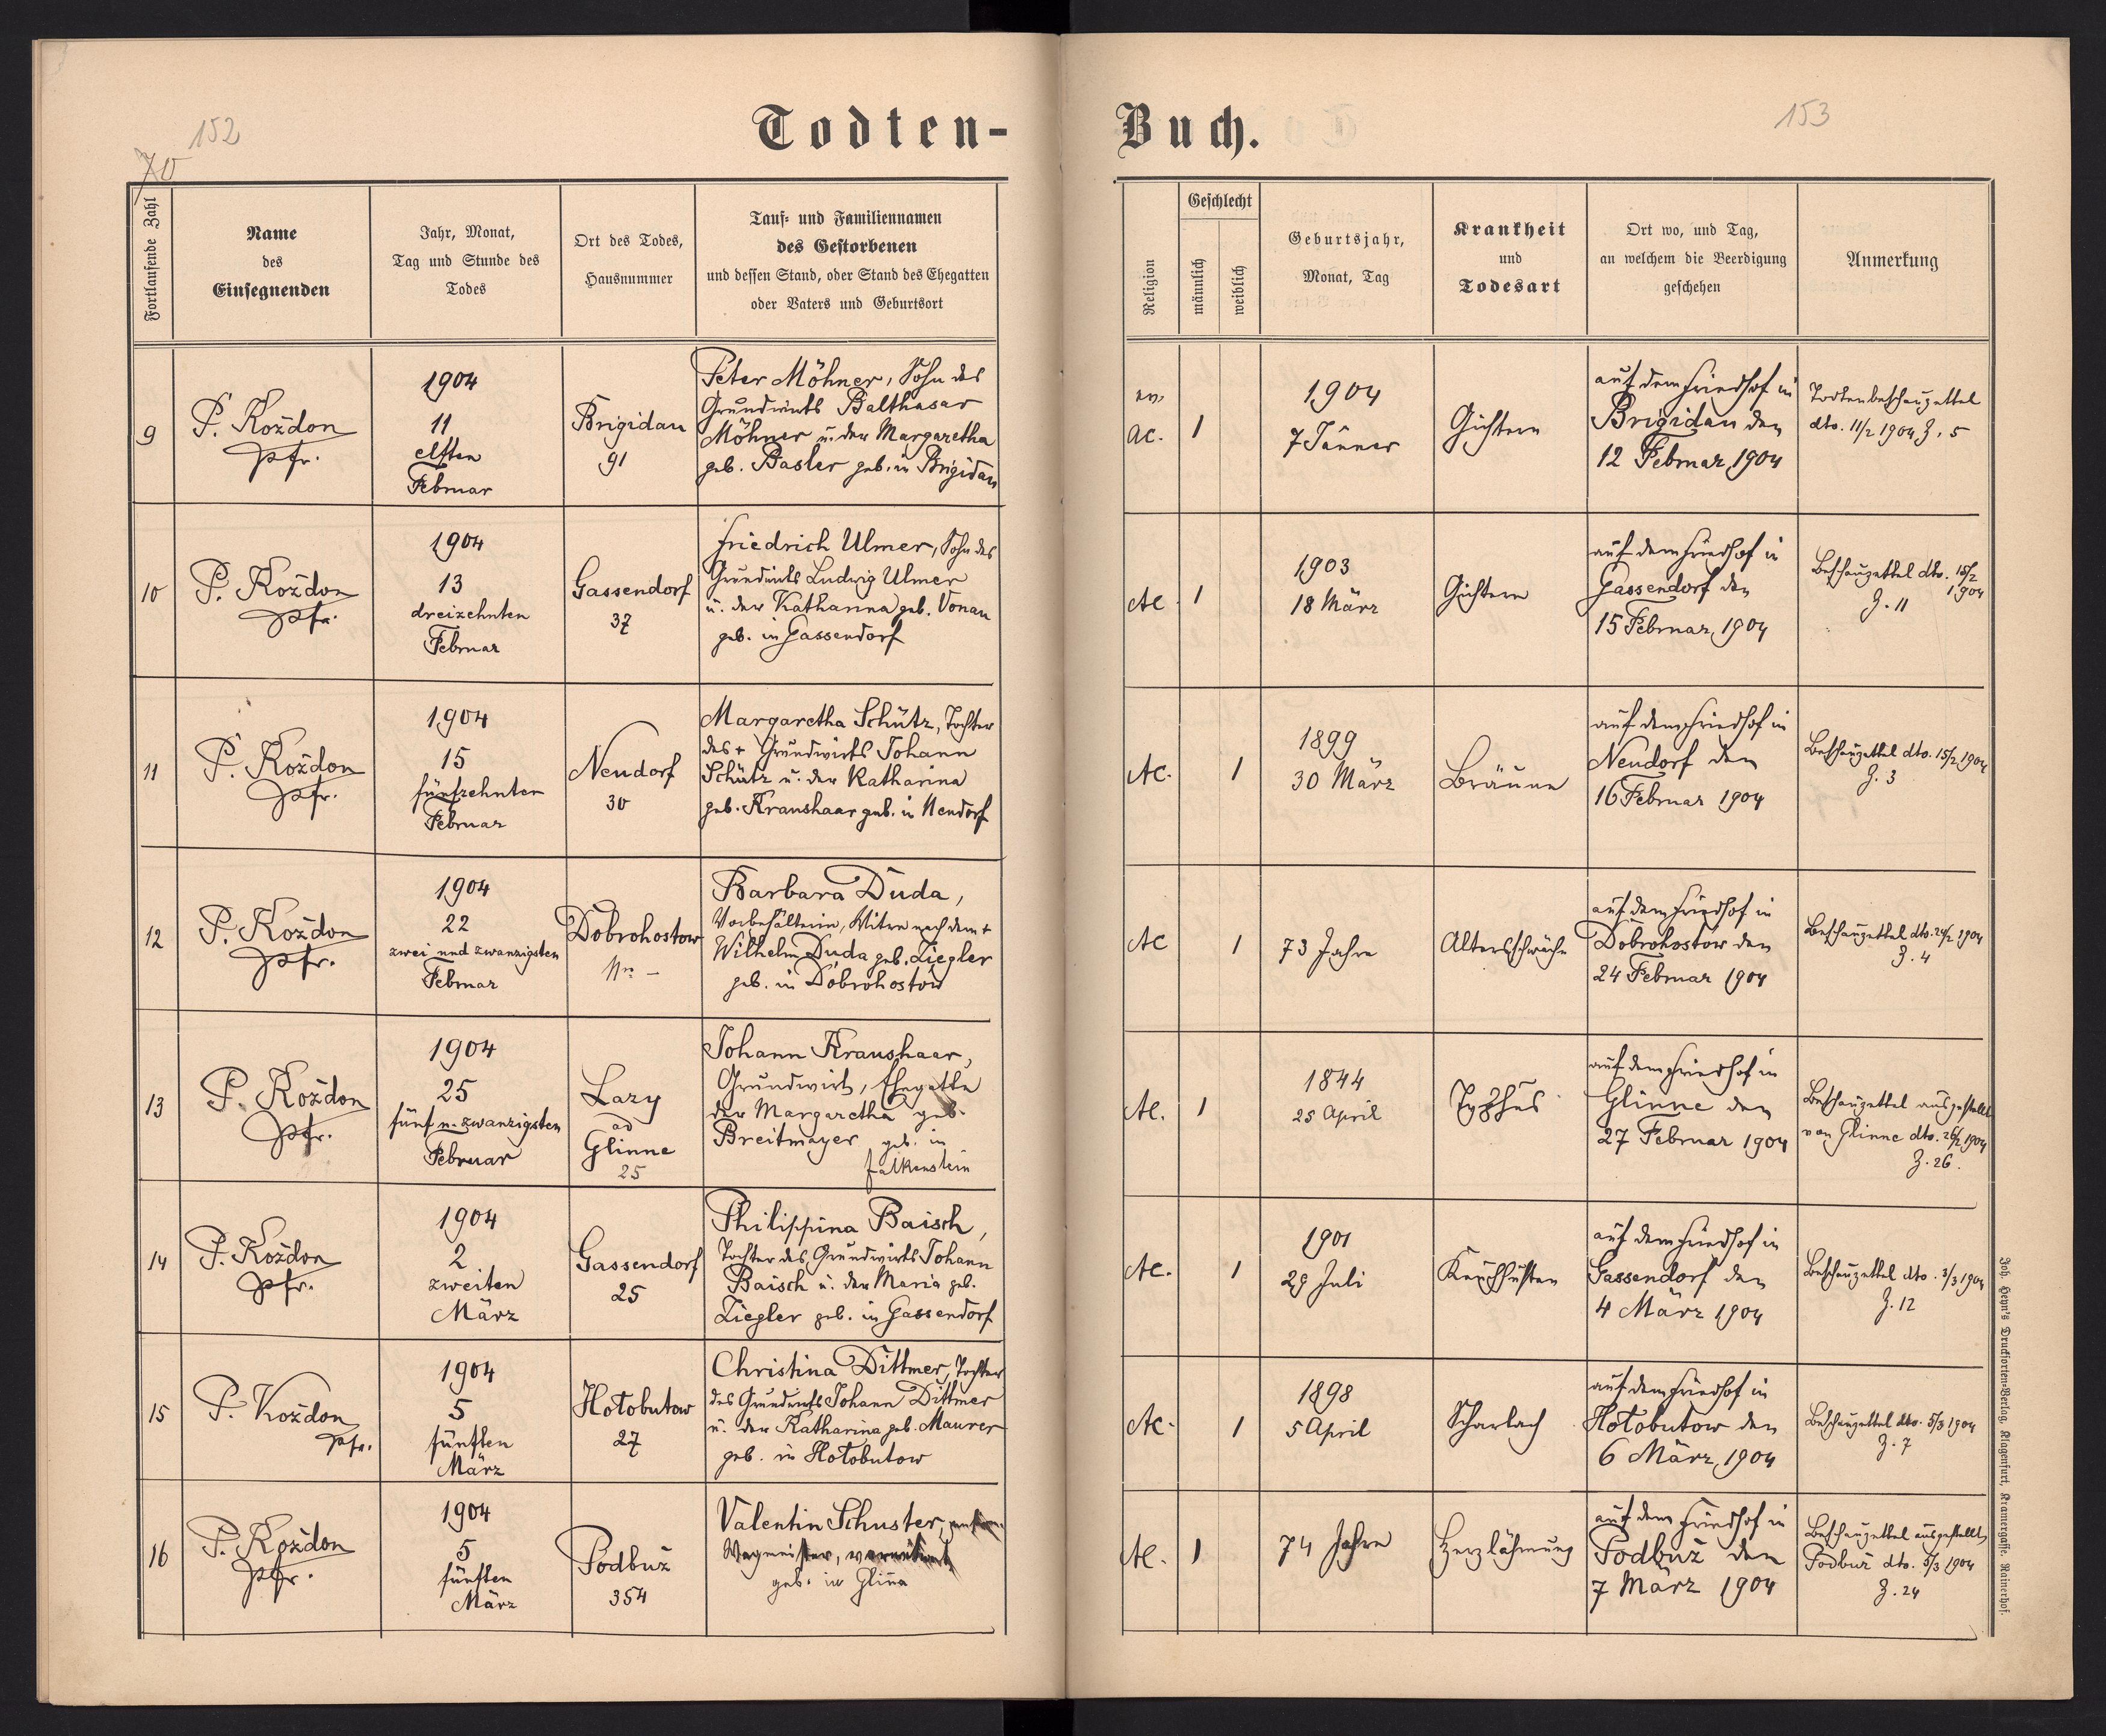 152
70
Todten-
Fortlaufende Zahl
Name
des
Einsegnenden
Jahr, Monat,
Tag und Stunde des
Todes
Ort des Todes,
Hausnummer
Tauf- und Familiennamen
des Gestorbenen
und dessen Stand, oder Stand des Ehegatten
oder Vaters und Geburtsort
9
P. Koždon
Pfr.
1904
11
elften
Februar
Brigidau
91
Peter Möhner, Sohn des
Grundwirts Balthasar
Möhner u. der Margaretha
geb. Basler geb. in Brigidau
10
P. Koždon
Pfr.
1904
13
dreizehnten
Februar
Gassendorf
37
Friedrich Ulmer, Sohn des
Grundwirts Ludwig Ulmer
u. der Katharina geb. Vonau
geb. in Gassendorf
11
P. Koždon
Pfr.
1904
15
fünfzehnten
Februar
Neudorf
30
Margaretha Schütz, Tochter
des + Grundwirts Johann
Schütz u. der Katharina
geb. Kraushaar geb. in Neudorf
12
P. Koždon
Pfr.
1904
22
zwei und zwanzigsten
Februar
Dobrohostow
Nr. –
Barbara Duda,
Vorbehälterin, Witwe nach dem +
Wilhelm Duda geb. Ziegler
geb. in Dobrohostow
13
P. Koždon
Pfr.
1904
25
fünf u. zwanzigsten
Februar
Lazy
ad
Glinne
25
Johann Kraushaar,
Grundwirt, Ehegatte
der Margaretha geb.
Breitmayer geb. in
Falkenstein
14
P. Koždon
Pfr.
1904
2
zweiten
März
Gassendorf
25
Philippina Baisch,
Tochter des Grundwirts Johann
Baisch u. der Maria geb.
Ziegler geb. in Gassendorf
15
P. Koždon
Pfr.
1904
5
fünften
März
Hotobutow
27
Christina Dittmer, Tochter
des Grundwirts Johann Dittmer
u. der Katharina geb. Maurer
geb. in Hotobutow
16
P. Koždon
Pfr.
1904
5
fünften
März
Podbuž
354
Valentin Schuster,
Wegmeister,
geb. in Glina
153
Buch.
Religion
Geschlecht
männlich
weiblich
Geburtsjahr,
Monat, Tag
Krankheit
und
Todesart
Ort wo, und Tag,
an welchem die Beerdigung
geschehen
Anmerkung
ev.
AC.
1
1904
7 Jänner
Gichtern
auf dem Friedhof in
Brigidau den
12 Februar 1904
Todtenbeschauzettel
dto. 11/2 1904 Z. 5
AC
1
1903
18 März
Gichtern
auf dem Friedhof in
Gassendorf den
15 Februar 1904
Beschauzettel dto. 15/2
1904
Z. 11
AC.
1
1899
30 März
Bräune
auf dem Friedhof in
Neudorf den
16 Februar 1904
Beschauzettel dto. 15/2 1904
Z. 3
AC
1
73 Jahre
Altersschwäche
auf dem Friedhof in
Dobrohostow den
24 Februar 1904
Beschauzettel dto. 24/2 1904
Z. 4
AC.
1
1844
25 April
Typhus
auf dem Friedhof in
Glinne den
27 Februar 1904
Beschauzettel ausgestellt
von Glinne dto. 26/2 1904
Z. 26.
AC.
1
1901
29 Juli
Keuchhusten
auf dem Friedhof in
Gassendorf den
4 März 1904
Beschauzettel dto. 3/3 1904
Z. 12
AC.
1
1898
5 April
Scharlach
auf dem Friedhof in
Hotobutow den
6 März 1904
Beschauzettel dto. 5/3 1904
Z. 7
AC.
1
74 Jahre
Herzlähmung
auf dem Friedhof in
Podbuž den
7 März 1904
Beschauzettel ausgestellt
Podbuž dto. 5/3 1904
Z. 24
Joh. Heyn's Drucksorten-Verlag, Klagenfurt, Kramergasse, Rainerhof.